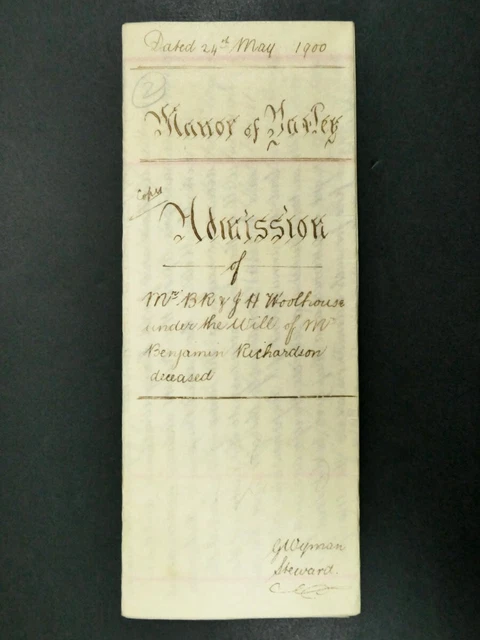 Dated 24th May 1900
2
Manor of Yaxley
Copy
Admission
of
Mrs BR & J H Woolhouse
under the Will of Mr
Benjamin Richardson
deceased
G Wyman
Steward.